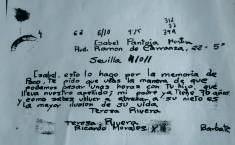 Isabel Pantoja
Avd. Ramon de Carranza, 22 - 5º
Sevilla 41011
Isabel, esto lo hago por la memoria de
Paco, te pido que veas la manera de que
podamos pasar unas horas con tu hijo, que
lleva nuestro apellido; mi padre ya tiene 90 años
y como sabes volver a estrenar a su nieto es
la mayor ilusion de su vida.
Teresa Rivera
Teresa Rivera
Ricardo Morales
Barbate